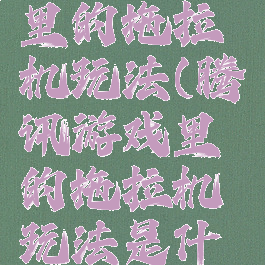 里的拖拉
机玩法(腾
讯游戏里
的拖拉机
玩法是什